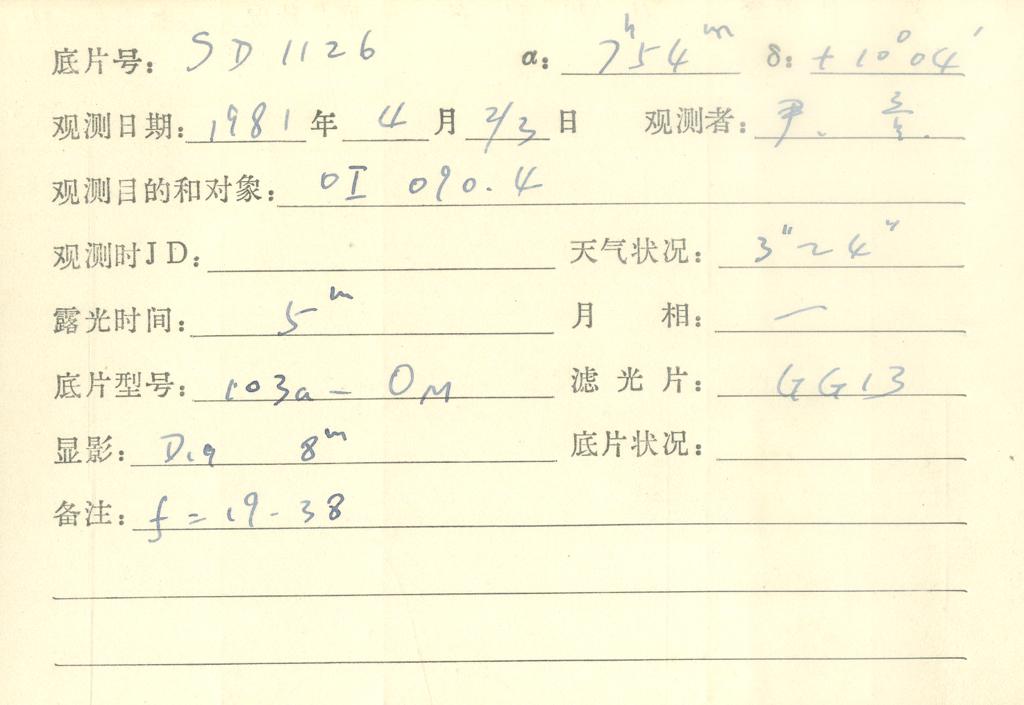 底片号: SD 1126 α: 7ʰ54ᵐ δ: +10°04′
观测日期: 1981 年 4 月 2/3 日 观测者: 尹.
观测目的和对象: OI 090.4
观测时JD: 天气状况: 3″~4″
露光时间: 5ᵐ 月 相: —
底片型号: 103a-OM 滤光片: GG13
显影: D19 8ᵐ 底片状况:
备注: f = 19.38